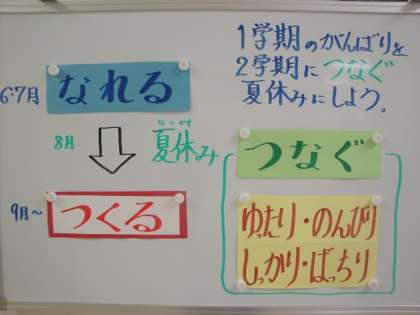 1学期のがんばりを
2学期につなぐ
夏休みにしよう。
6・7月
なれる
8月
なつやす
夏休み
つなぐ
9月~
つくる
ゆったり・のんびり
しっかり・ばっちり